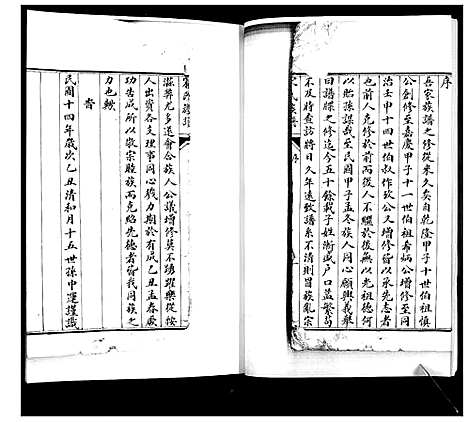 序
吾家族譜之修從來久矣自乾隆甲子十世伯祖慎
公創修至嘉慶甲子十一世伯祖希炳公增修至同
治壬申十四世伯叔作玫公又增修皆以承先志者
也前人克修於前而後人不繼於後無以光祖德何
以貽孫謀哉至民國甲子孟冬族人同心願興我舉
曰譜之修迄今五十餘載子姓漸多戶口益繁苟
不及時查訪將日久年遠致譜系不清則冒族亂宗
滋弊尤多遂會合族人公議增修莫不踴躍樂從按
人出資各支理事同心戮力期於有成乙丑孟春厥
功告成所以敬宗睦族而克紹先德者皆我同族之
力也歟
旹
民國十四年歲次乙丑清和月十五世孫中運謹識